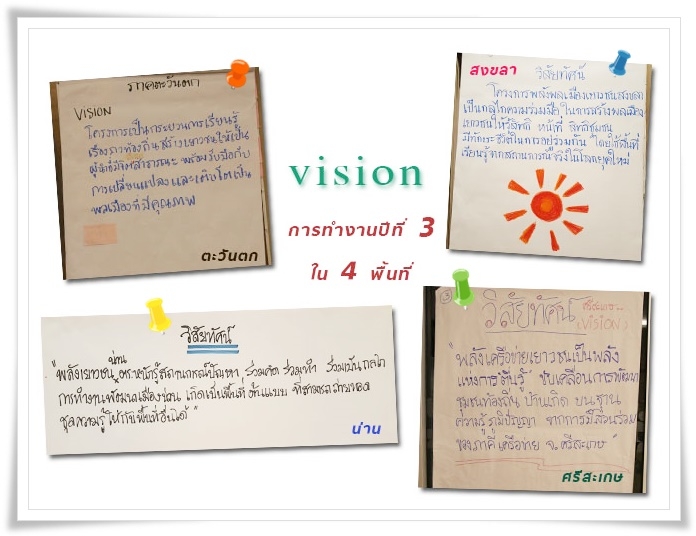 ภาคตะวันตก
VISION
โครงการเป็นกระบวนการเรียนรู้
เรื่องราวท้องถิ่นสร้างเยาวชนให้เป็น
ผู้ที่มีจิตสาธารณะ พร้อมรับมือกับ
การเปลี่ยนแปลงและเติบโตเป็น
พลเมืองที่มีคุณภาพ
ตะวันตก
สงขลา
วิสัยทัศน์
โครงการพลังพลเมืองเยาวชนสงขลา
เป็นกลไกความร่วมมือ ในการสร้างพลเมือง
เยาวชนให้รู้สิทธิ หน้าที่ สิทธิชุมชน
มีทักษะชีวิตในการอยู่ร่วมกัน โดยใช้พื้นที่
เรียนรู้จากสถานการณ์จริงในโลกยุคใหม่
vision
การทำงานปีที่ 3
ใน 4 พื้นที่
วิสัยทัศน์
"พลังเยาวชนน่าน ตระหนักรู้สถานการณ์ปัญหา ร่วมคิด ร่วมทำ ร่วมเป็นกลไก
การทำงานพัฒนาเมืองน่าน เกิดเป็นพื้นที่ต้นแบบ ที่สามารถถ่ายทอด
ชุดความรู้ให้กับพื้นที่อื่นได้"
น่าน
วิสัยทัศน์
ศรีสะเกษ
(VISION)
"พลังเครือข่ายเยาวชนเป็นพลัง
แห่งการเรียนรู้ ขับเคลื่อนการพัฒนา
ชุมชนท้องถิ่น บ้านเกิด บนฐาน
ความรู้ ภูมิปัญญา จากการมีส่วนร่วม
ของภาคีเครือข่าย จ.ศรีสะเกษ"
ศรีสะเกษ